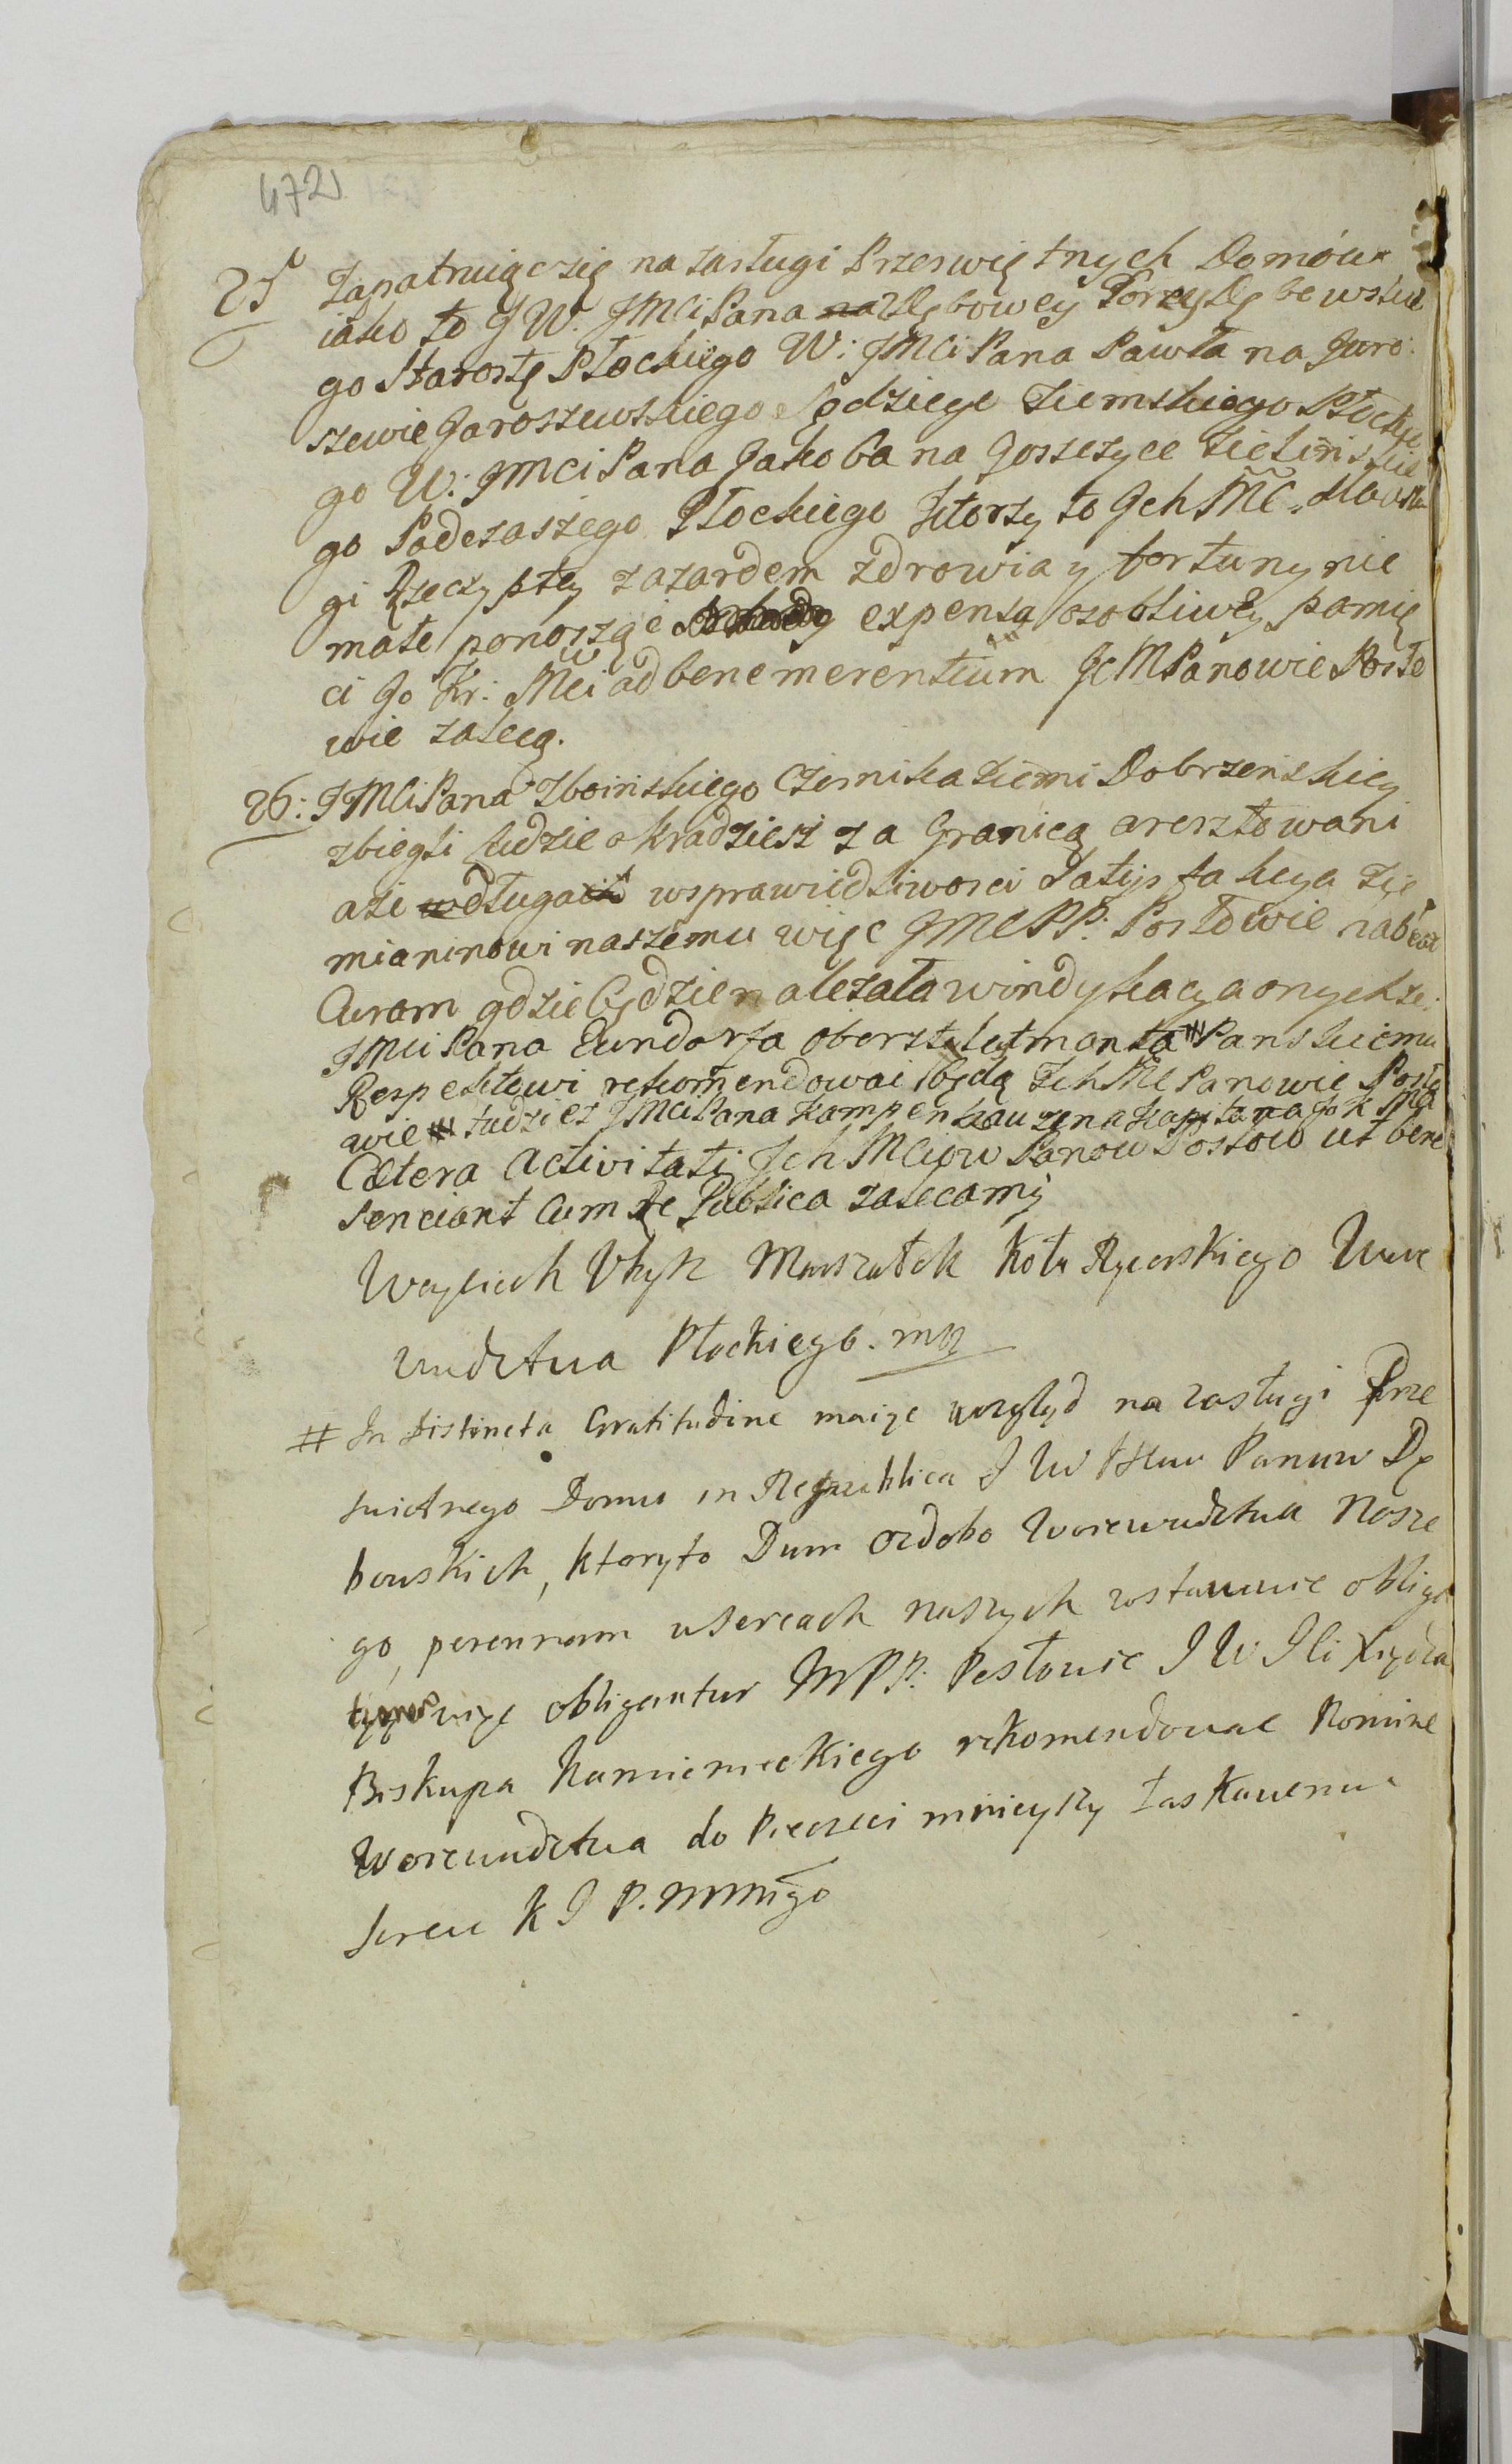 472
25 Zapatruiąc się na zasługi Przeswiętnych Domów
iako to J W. JMCi Pana na Dębowey Dębowskie
go Starostę Płockiego W: JMCi Pana Pawła na Jaro:
szewie Jaroszewskiego Sędziego Ziemskiego Płockie
go W: JMCi Pana Jakoba na Goszczyce Zielinskie
go Podczaszego Płockiego ktorzy to Ich MC.
gi Rzeczyptey zazardem zdrowia y fortuny nie
małe ponosząc expensa osobliwey pamię
ci Jo Kr: Mci ad bene merentium IchM Panowie Posło
wie zalecą.
26: JMCi Pana Zboinskiego Czesnika Ziemi Dobrzenskiey
zbiegli ludzie okradziesz za Granicą aresztowani
aże długa wsprawiedliwosci Satysfakcya Zie
mianinowi naszemu więc JMC PP. Posłowie
Curam gdzie będzie nalezała windykacya onychże.
JMCi Pana Eundorfa oberszteletmanta # Panskiemu
Respektowi rekomendowac będą Ich MC Panowie Posło
wie # tudzies JMCi Pana Kampenhauzena Kapitana Jo K Mci
Cætera activitati Ich MCiow Panow Posłow ut bene
senciant cum Re Publica zalecamy
Woyciech Marszałek Koła Rycerskiego Woie
wudztwa Płockiego. mp
# In distincta Gratitudine maiąc wzgląd na zasługi Prze
swietnego Domu in Republica J W Ichm Panuw Dę
bowskich, ktoryto Dum ozdobo Worewudztwa Nasze
go, perennam wsercach naszych zostawuie obliga
więc obligantur MPP. Posłowie J W J Ci Xiędza
Biskupa Kamienieckiego rekomendowac Nomine
Worewudztwa do Pieczeci mnieyszy łaskawemu
sercu K J P. NMMgo